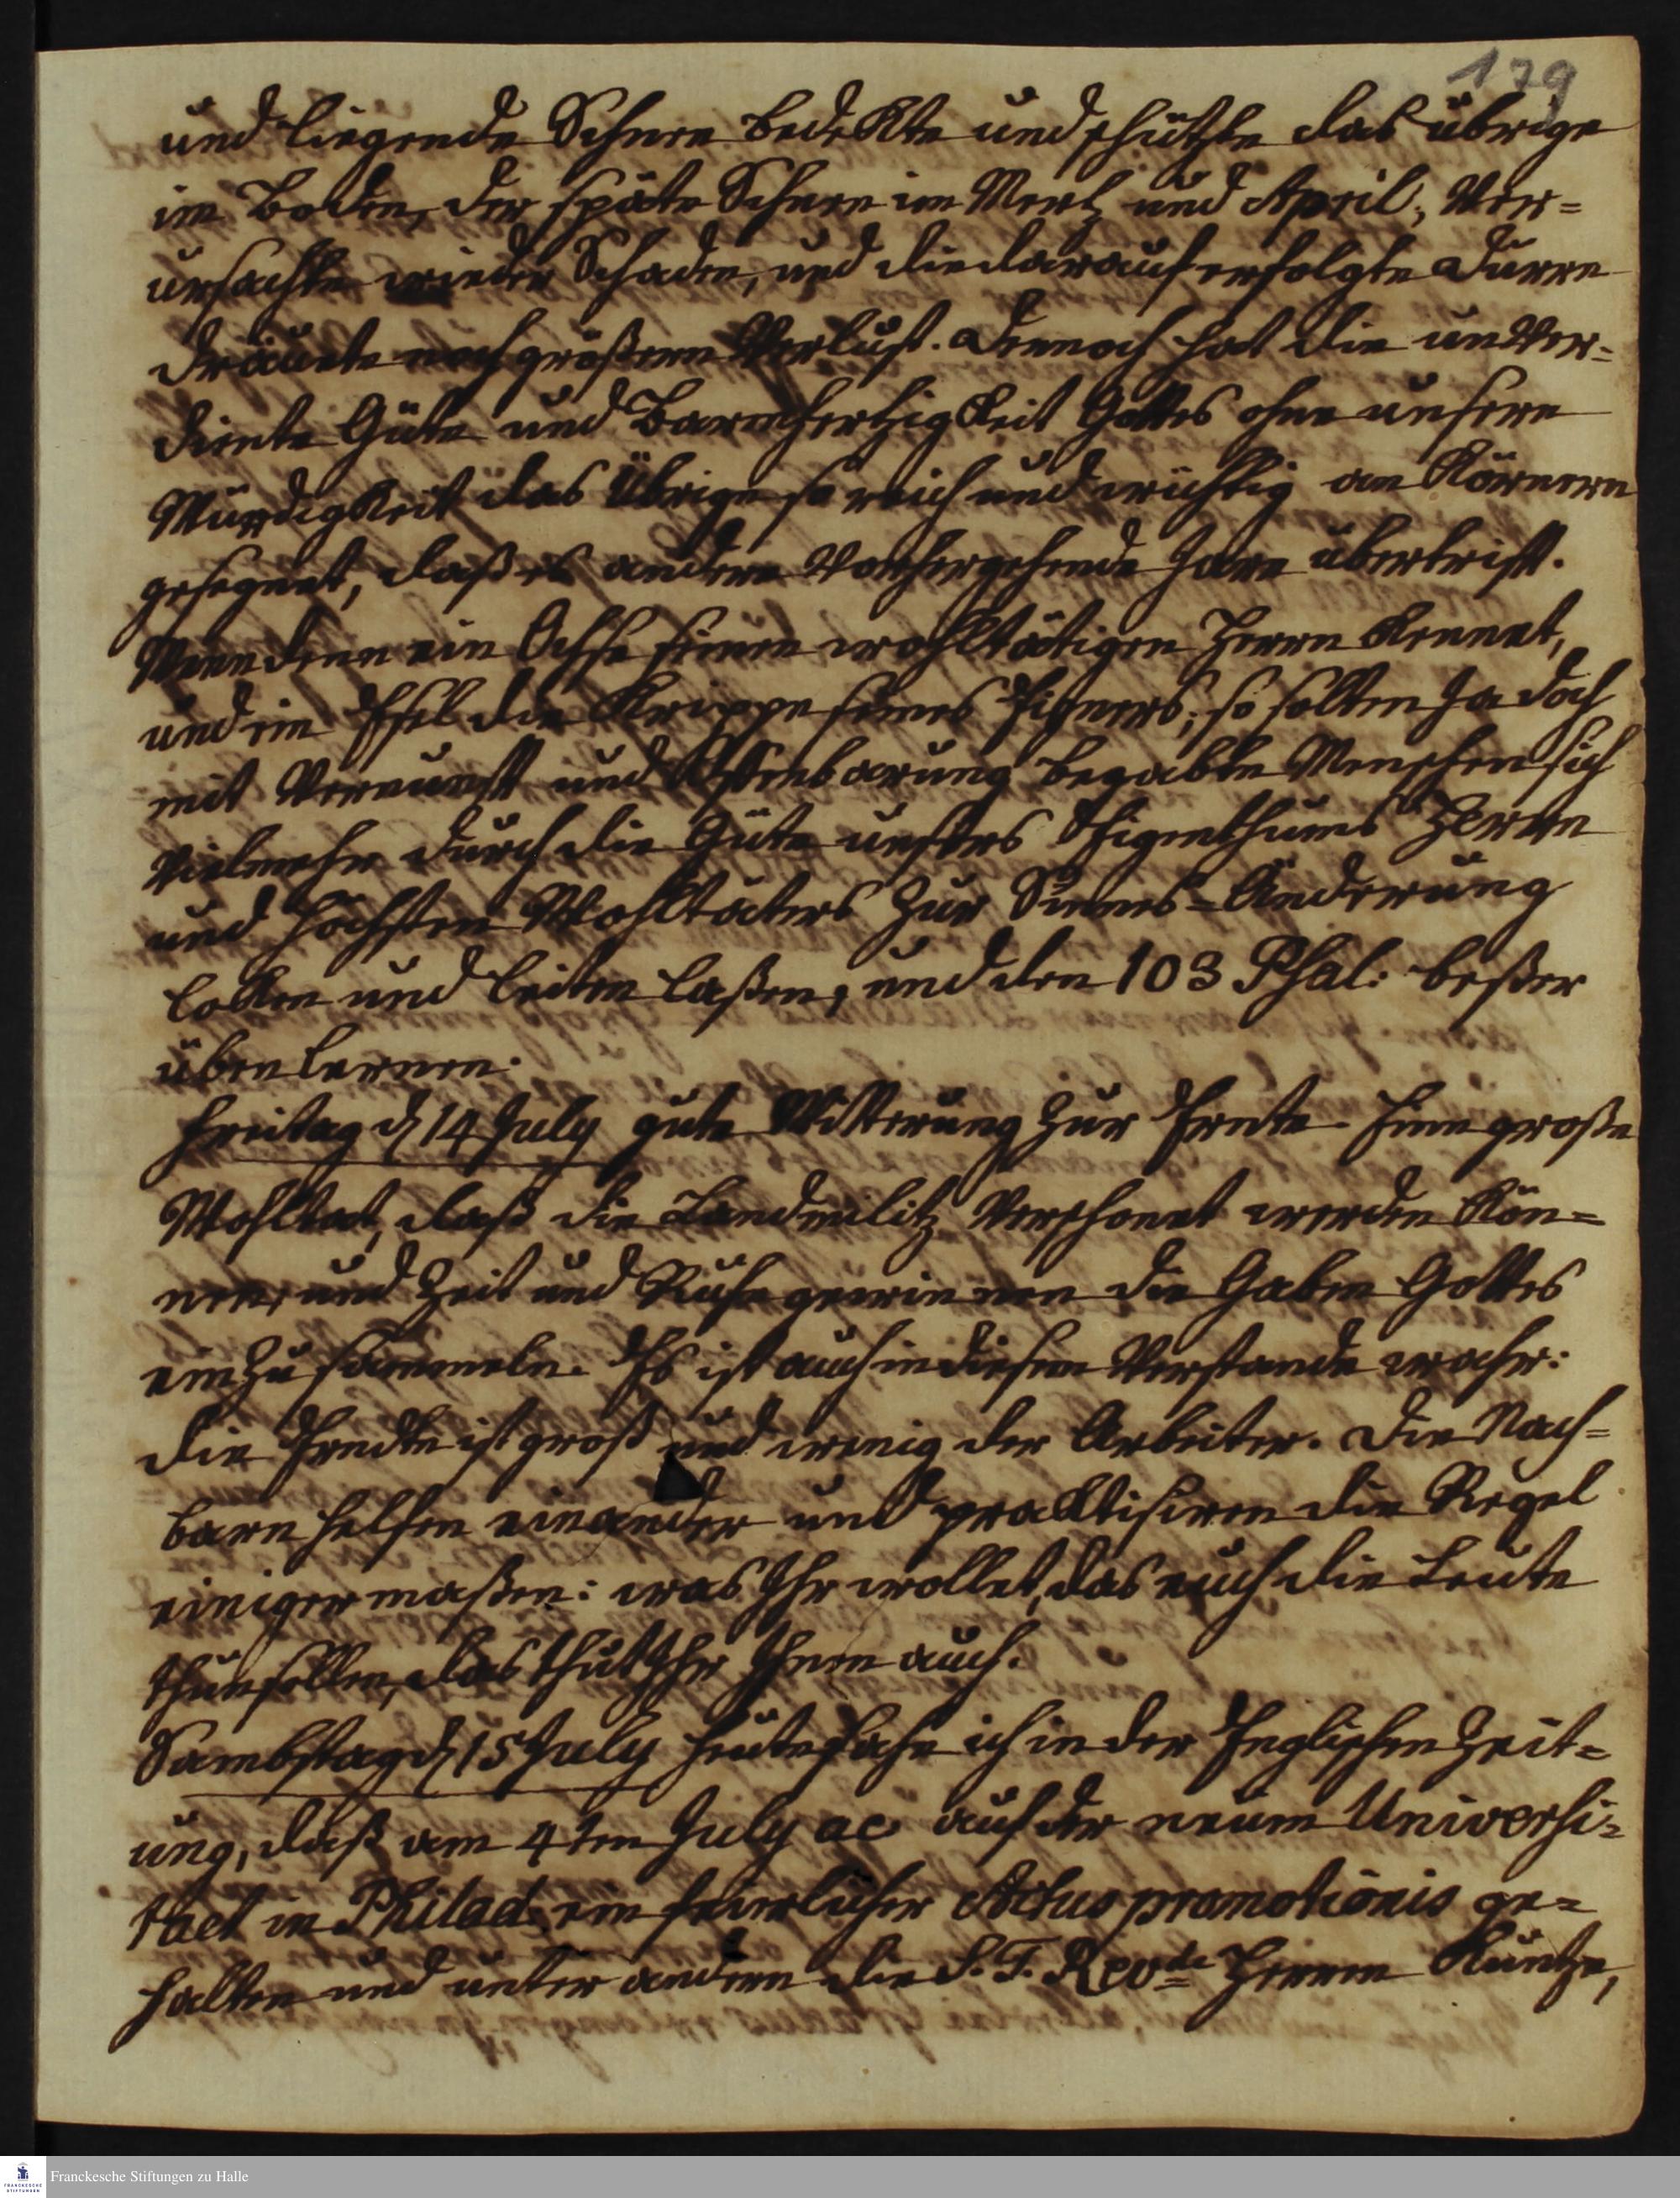 179
und liegende Schnee bedekte und schützte das übrige
im Boden, der späte Schnee im Mertz und April, Ver=
ursachte wieder Schaden, und die darauf erfolgte Dürre
dräuete noch größern Verlust. Dennoch hat die unver=
diente Güte und Barmhertzigkeit Gottes ohne unsere
Würdigkeit das Übrige so reich und wichtig an Körnern
gesegnet, daß es andere Vorhergehende Jare übertrift.
Wenn denn ein Ochse seinen wohltätigen Herrn kennet,
und ein Esel die Krippe seines Eigners; so solten ja doch
mit Vernunft und Offenbarung begabte Menschen sich
vielmehr durch die Güte unsers Eigenthums Herrn
und höchsten Wohltäters zur Sinnes=Änderung
locken und leiten laßen, und den 103 Psal: beßer
üben lernen.
Freitag d 14 July gute Witterung zur Ernte. Eine große
Wohltat, daß die Landmilitz Verschonet werden kön=
nen, und Zeit und Ruhe gewinnen die Gaben Gottes
einzusammeln. Es ist auch in diesem Verstande wahr:
die Erndte ist groß und wenig der Arbeiter. Die Nach=
barn helfen einander und practisiren die Regel
einigermaßen: was Ihr wollet, das euch die Leute
thun sollen, das thut Ihr Ihnen auch.
Sambstag d 15 July heute sahe ich in der Englischen Zeit=
ung, daß am 4ten July ac auf der neuen Universi=
taet in Philad: ein feierlicher Actus promotionis ge=
halten und unter andern die S. T. Revde Herren Kuntze,
Franckesche Stiftungen zu Halle